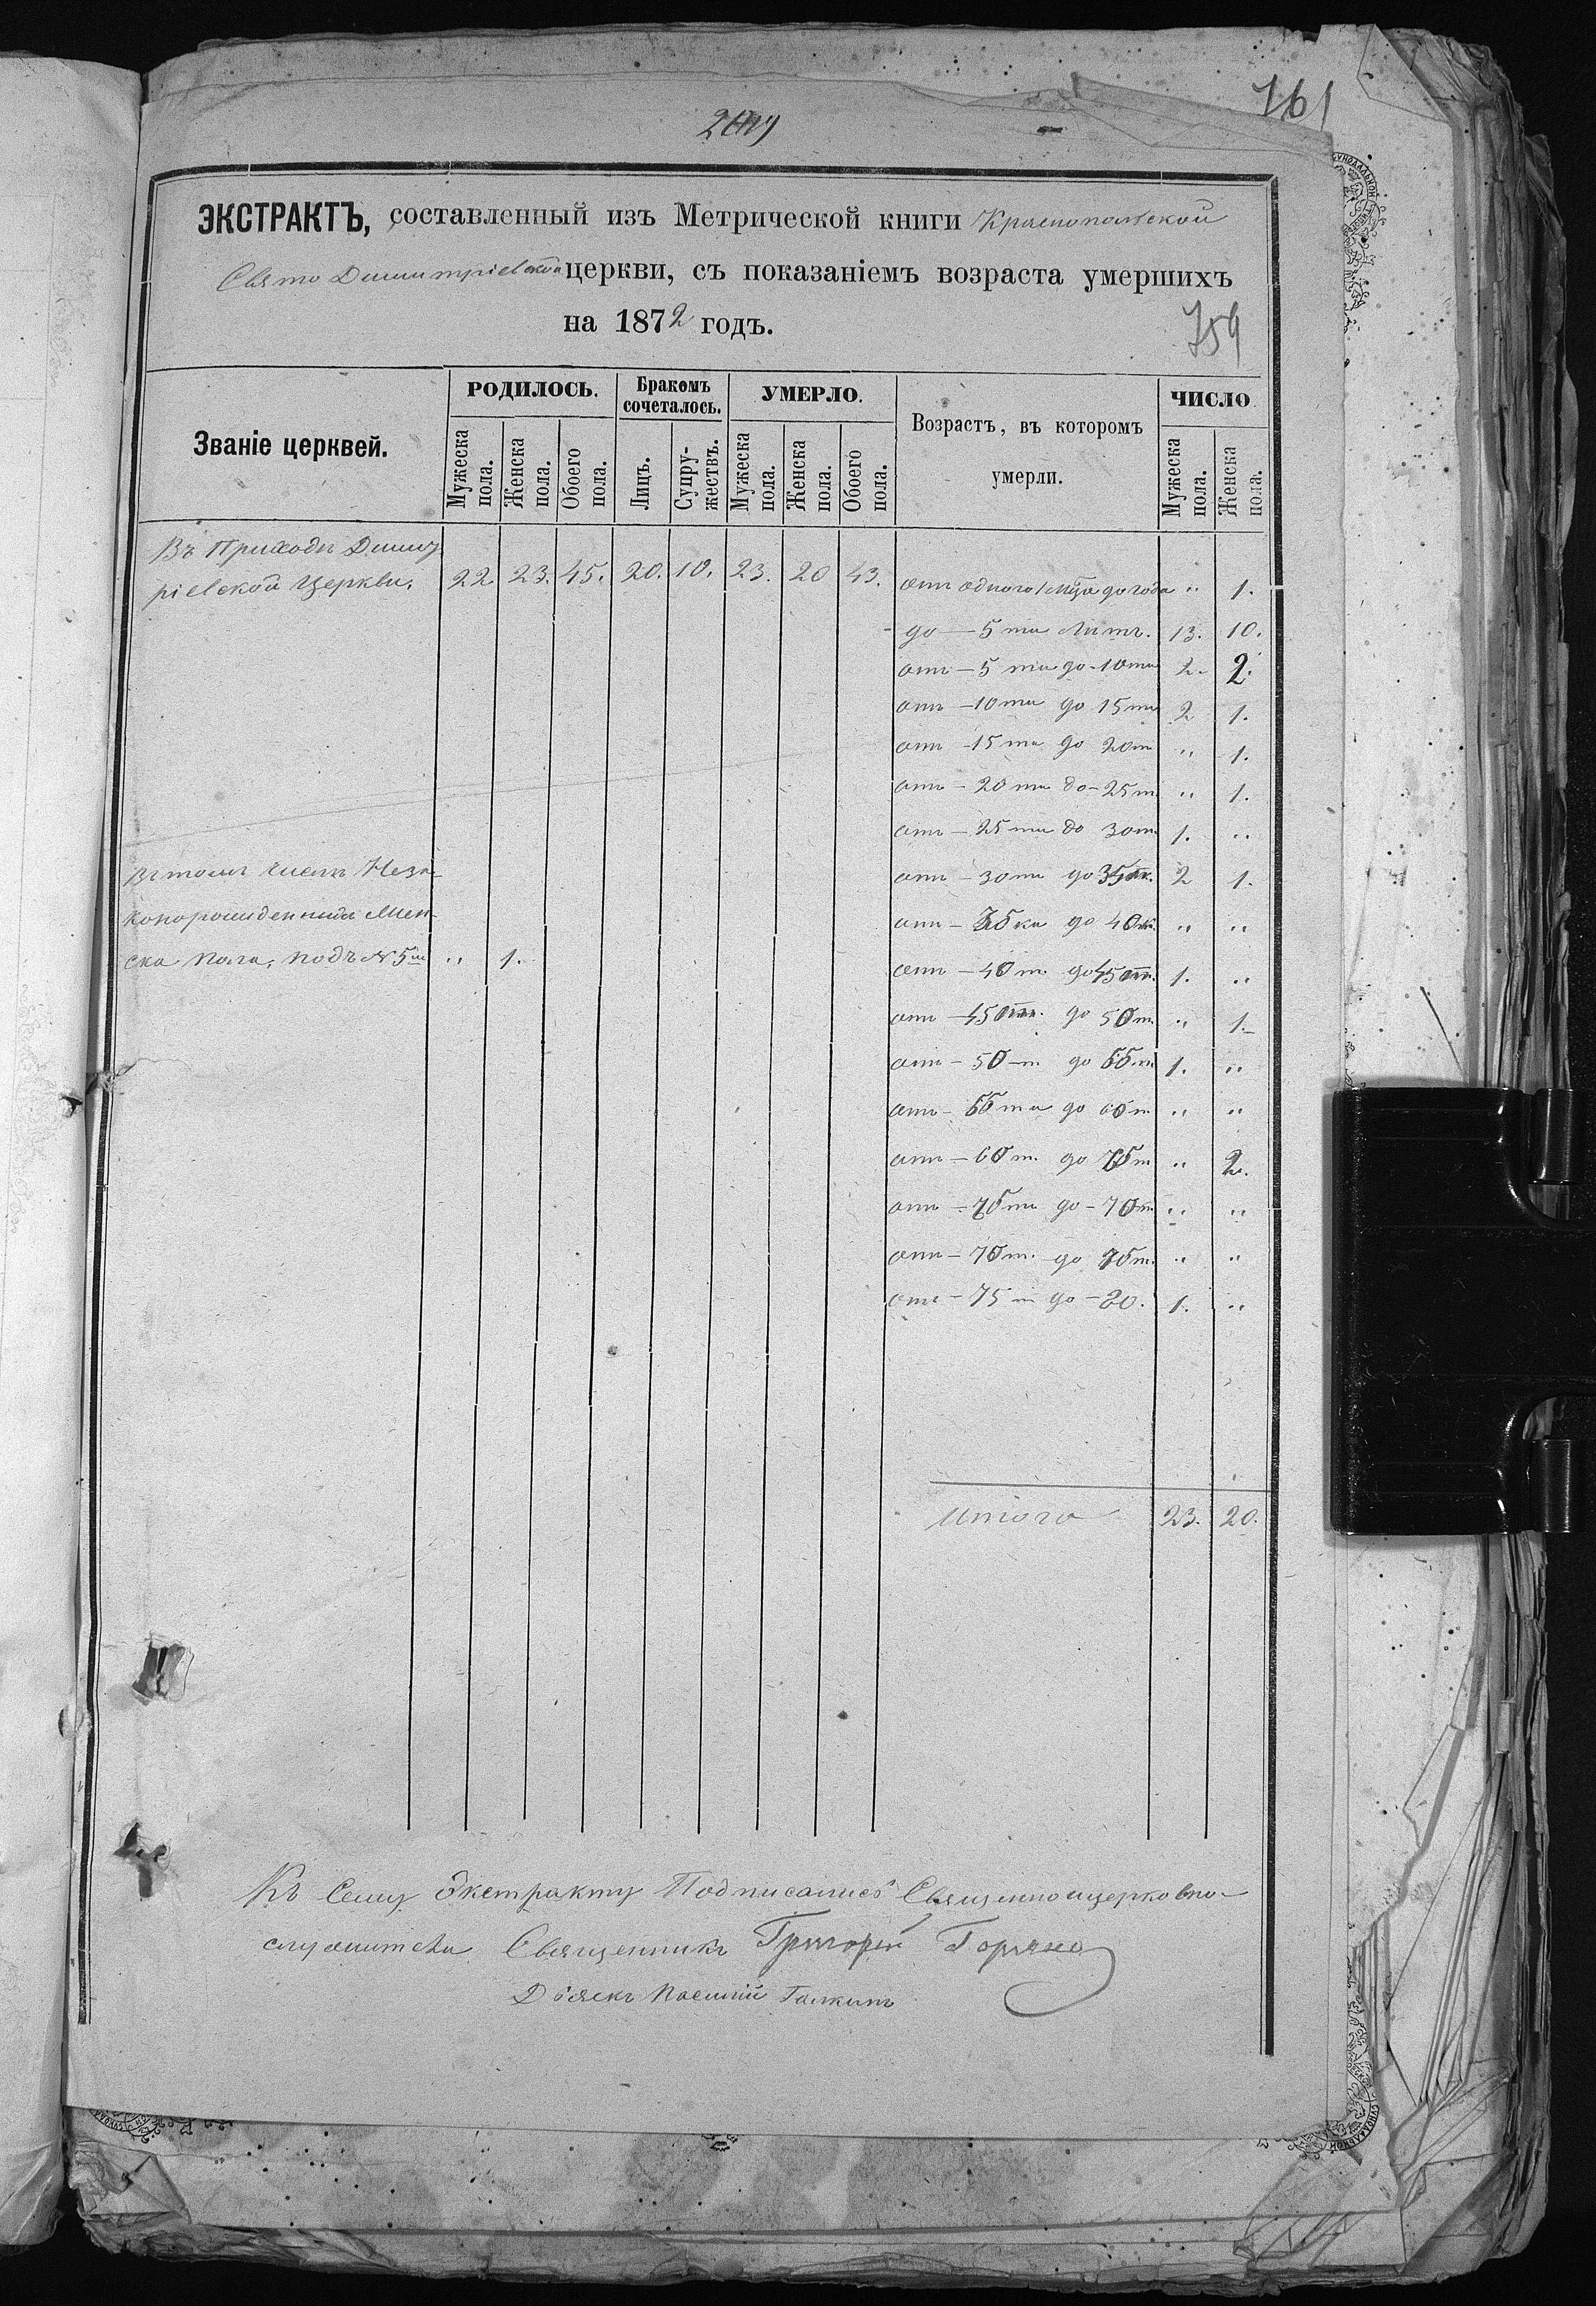 161
ЭКСТРАКТЪ, составленный изъ Метрической книги Краснопольской
Свято Димитріевской церкви, съ показаніемъ возраста умершихъ
на 1872 годъ.
759
Званіе церквей.
РОДИЛОСЬ.
Бракомъ сочеталось.
УМЕРЛО.
Возрастъ, въ которомъ умерли.
ЧИСЛО
Мужеска пола. Женска пола. Обоего пола. Лицъ. Супружествъ. Мужеска пола. Женска пола. Обоего пола. Мужеска пола. Женска пола.
Въ Приходѣ Димит
ріевской Церкви. 22 23. 45. 20. 10. 23. 20 43. отъ одного мца до года " 1.
до — 5 ти лѣтъ. 13. 10.
отъ — 5 ти до - 10 ти 2. 2.
отъ — 10 ти до 15 ти 2 1.
отъ - 15 ти до 20 т " 1.
отъ - 20 ти до - 25 т. " 1.
отъ - 25 ти до 30 т. 1. "
Въ томъ числѣ Неза-
отъ - 30 ти до 35 2 1.
конорожденныхъ Жен-
отъ - 35 до 40 " "
ска пола, подъ № 5 м " 1.
отъ - 40 т. до 45 1. "
отъ - 45 до 50 т. " 1.
отъ - 50 - т до 55 1. "
отъ - 55 ти до 60 т " "
отъ - 60 т. до 65 т " 2.
отъ - 65 ти до - 70 " "
отъ - 70 т. до 75 т. " "
отъ - 75 т до - 80. 1. "
Итого 23. 20.
Къ Сему Экстракту Подписались Священноцерковно-
служители Священникъ Григорій
Дьякъ Галкинъ